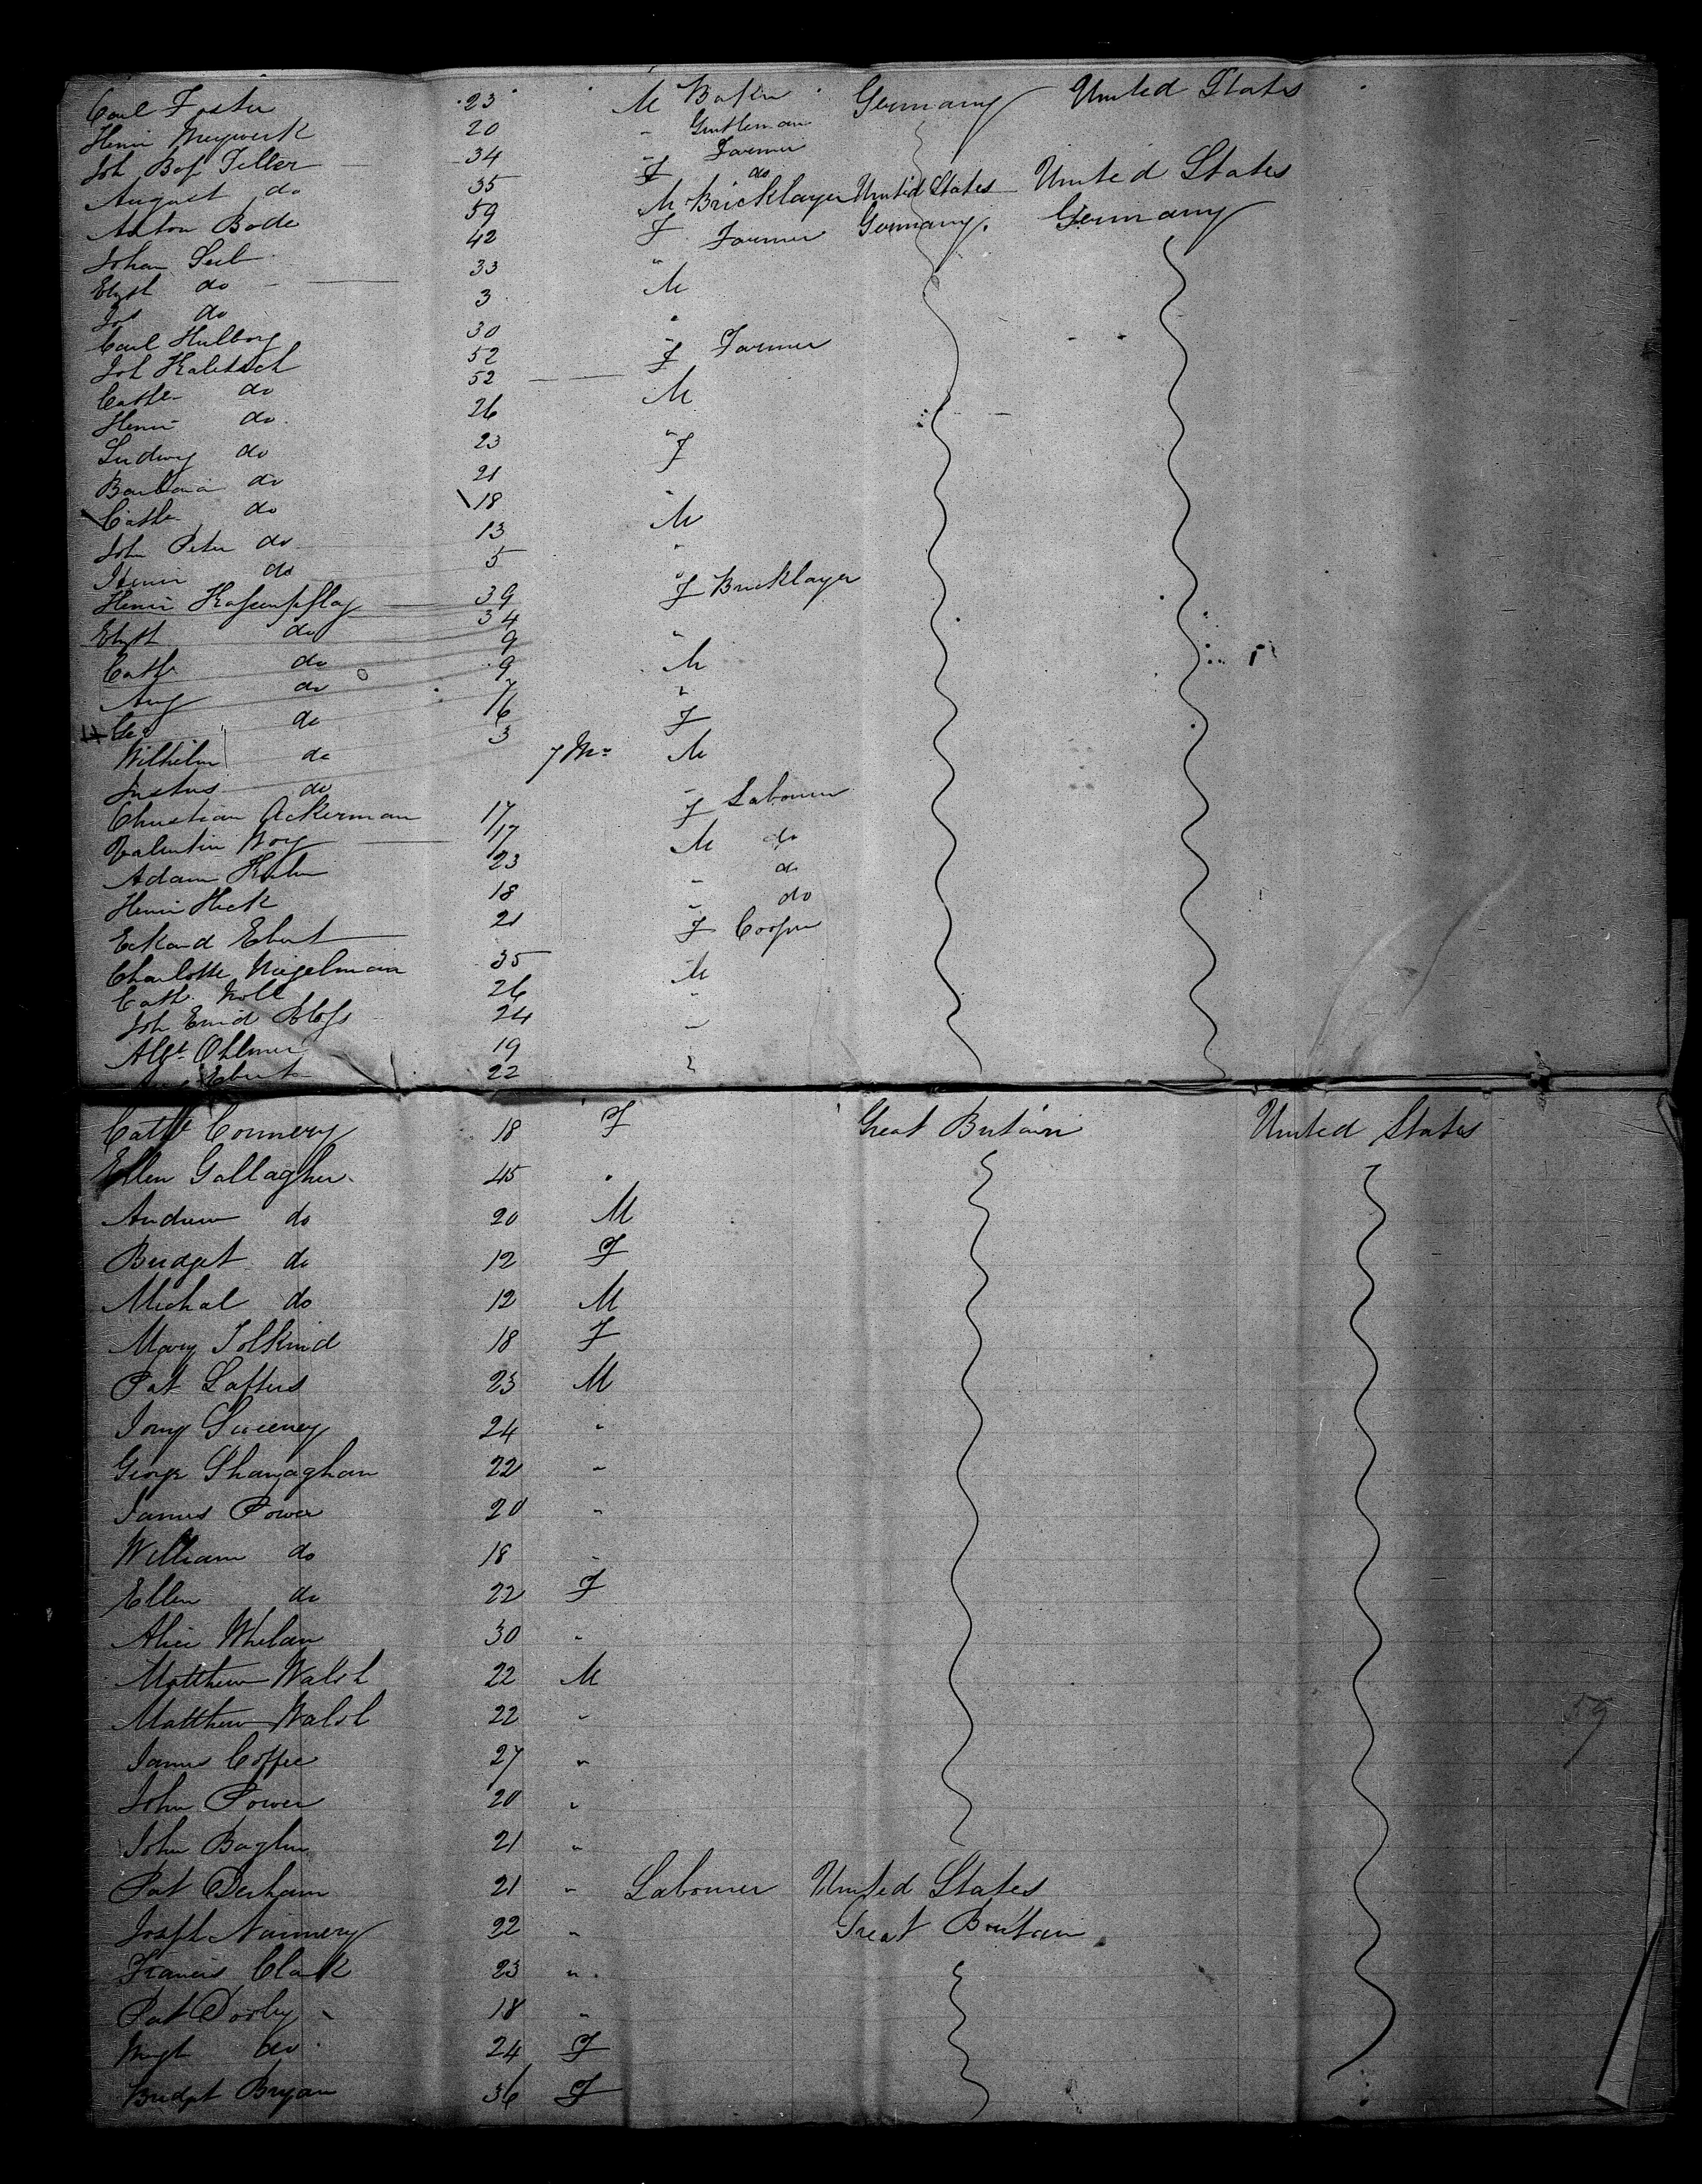 Carl Foster 23 M Baker Germany United States
Henri Meywerk 20 " Gentleman
Joh Bap Teller 34 " Farmer
August do 35 F do
Anton Bode 59 M Bricklayer United States United States
Johan Seib 42 F Farmer Germany Germany
Elizth do 33 "
Jos do 3 M
Carl Hulborg 30 "
Joh Kalbach 52 " Farmer
Cathe do 52 F
Henri do 26 M
Ludwig do 23
Barbara do 21 "
Cathe do 18 F
John Peter do 13 "
Henri do 5 M
Henri Hasenpflag 39 " Bricklayer
Elizth do 34 F
Cathe do 9 "
Aug do 9 M
Geo do 7
Wilhelm do 6 "
Justus do 3 F
7 Mo M
Christian Ackerman 17 " Labourer
Valentin Noy 17 F
Adam Hahn 23 M do
Henri Heck 18 " do
Eckard Ebert 21 " do
Charlotte Niegelmann 35 F Cooper
Cath Noll 26 M
Joh 24 "
Albt Ohlmer 19 "
Aug Ebert 22 "
Cathe Connery 18 F Great Britain United States
Ellen Gallagher 45 "
Andrew do 20 M
Bridget do 12 F
Michal do 12 M
Mary Tolkind 18 F
Pat Laftus 23 M
Sweeney 24 "
George Shanaghan 22 "
James Power 20 "
William do 18 "
Ellen do 22 F
Alice Whelan 30 "
Matthew Walsh 22 M
Matthew Walsh 22 "
James Coffee 27 "
John Power 20 "
John Baghn 21 "
Pat Derham 21 " Labourer United States
Joseph Nannery 22 " Great Britain
Francis Clark 23 "
Pat Dooly 18 "
Mgt do 24 F
Bridget Bryan 36 F
59